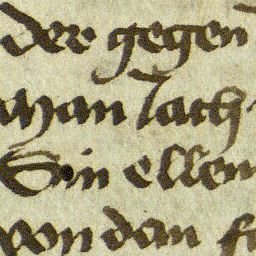 der gegen
man sach
Sin ellen
von dem